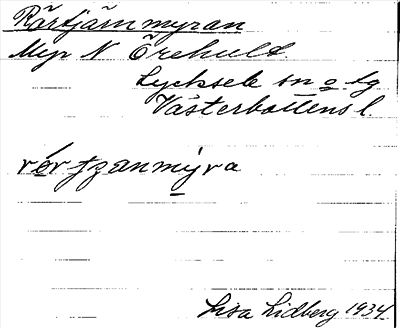 Rörtjärnmyran
Myr N Örehult.
Lycksele sn o lg
Västerbottens l.
rórtzanmýra
Lisa Lidberg 1934.